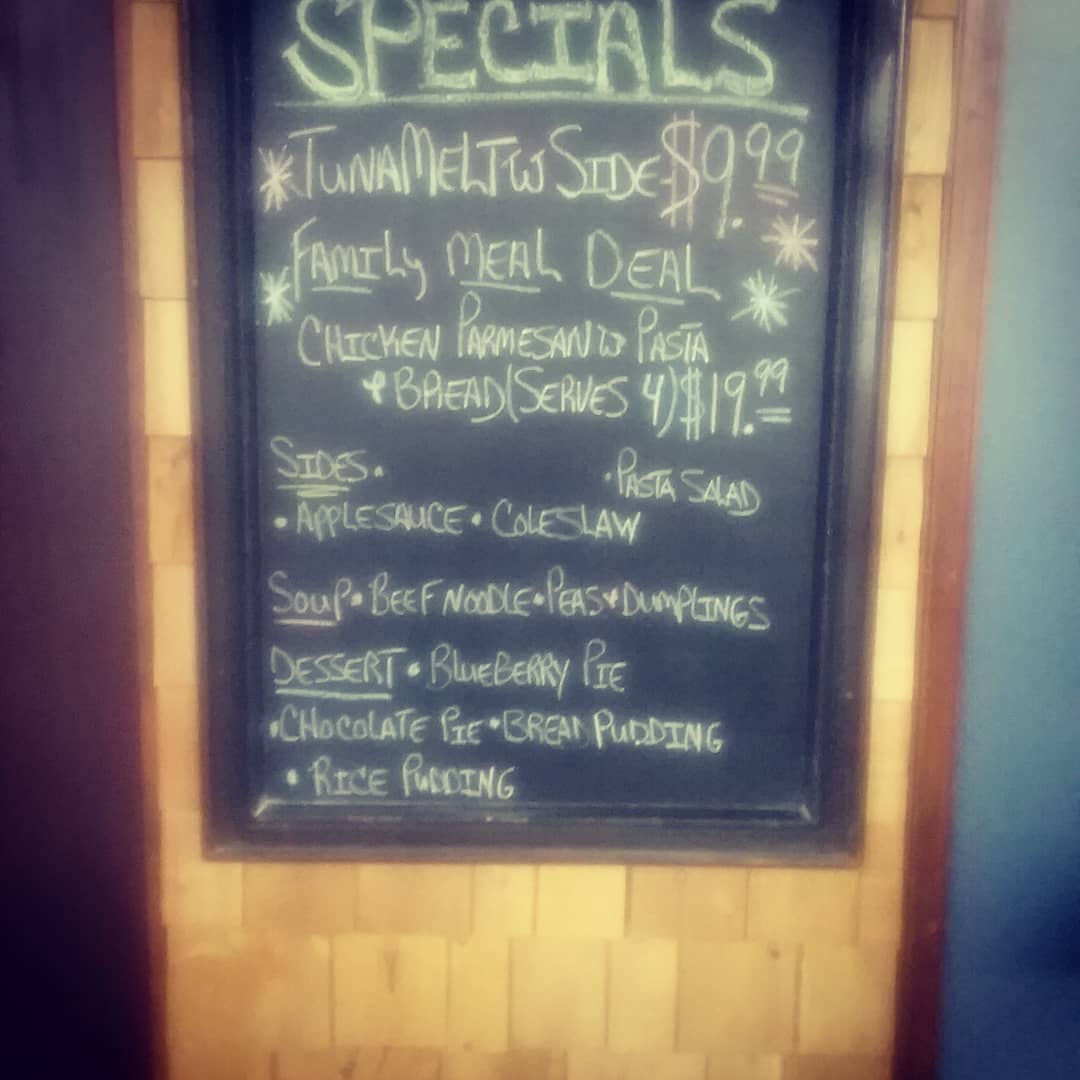 SPECIALS
*TUNA MELT W SIDE $9.99
FAMILY MEAL DEAL
CHICKEN PARMESAN W PASTA
& BREAD (SERVES 4) $19.99
SIDES. •PASTA SALAD
• APPLESAUCE • COLESLAW
SOUP • BEEF NOODLE • PEAS & DUMPLINGS
DESSERT • BLUEBERRY PIE
• CHOCOLATE PIE • BREAD PUDDING
• RICE PUDDING